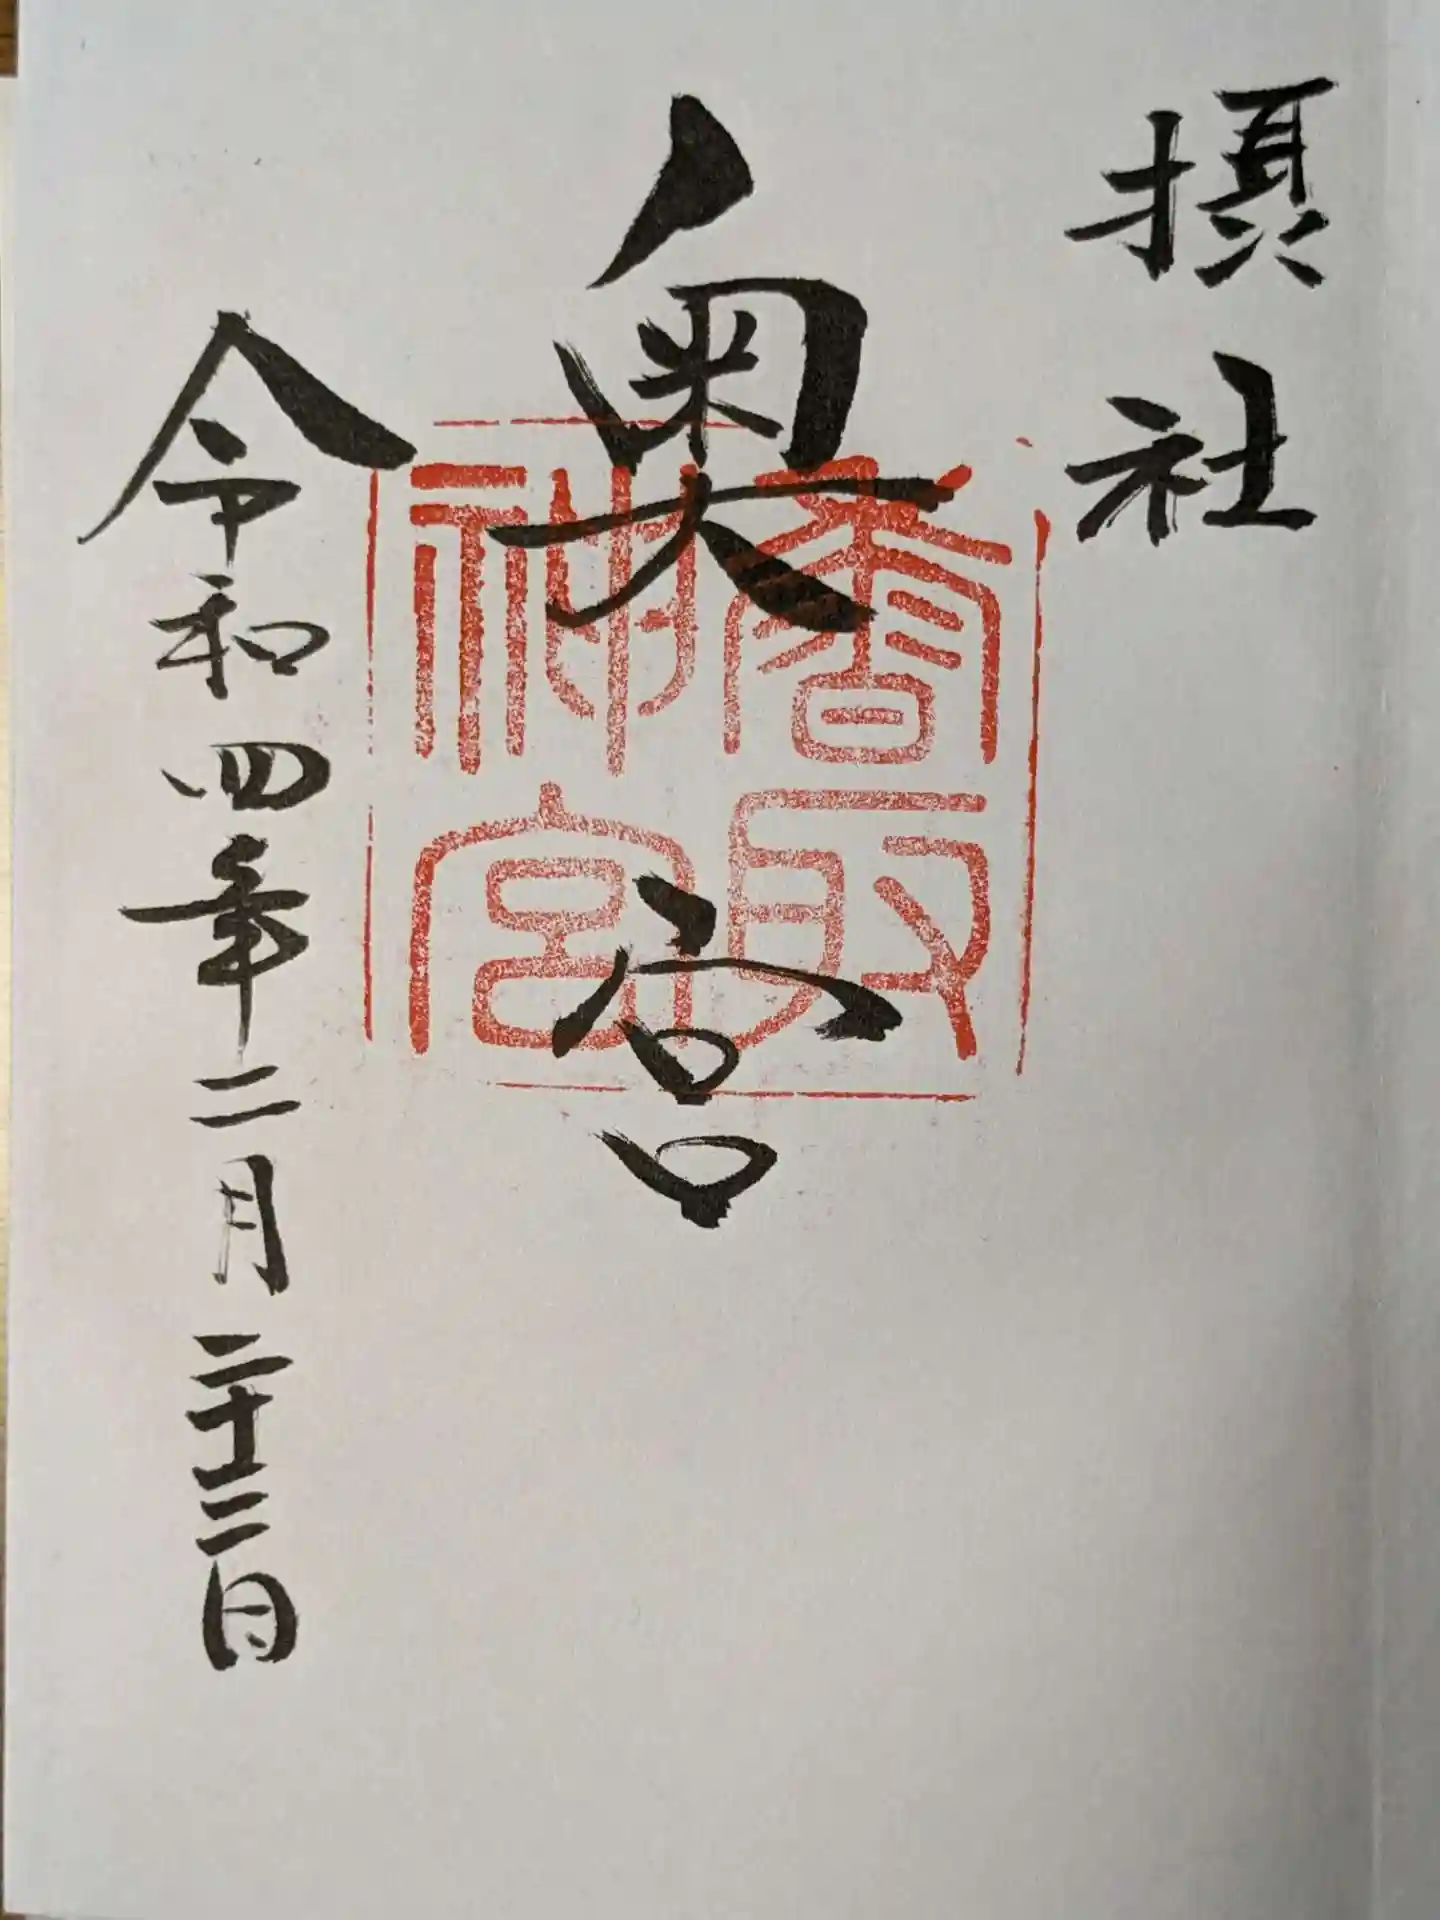 摂社
奥宮
香取神宮
令和四年二月二十二日